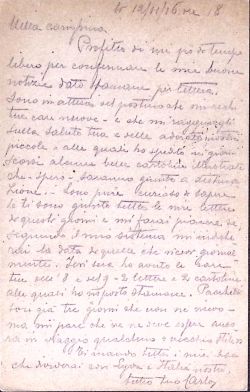 li 12/11/16 ore 18
Mia carissima.
Profitto di un po' di tempo
libero per confermare le mie buone
notizie date stamane per lettera.
Sono in attesa del postino che mi rechi
tue care nuove - e che mi ragguagli
sulla salute tua e delle adorate nostre
piccole e alle quali ho spedito in giorni
scorsi alcune belle cartoline illustrate
che - spero - saranno giunte a destina
zione. - Sono pure curioso di sapere
se ti sono giunte tutte le mie lettere
di questi giorni e mi farai piacere, se
seguendo il mio sistema mi indiche
rai la data di quelle che ricevi giornal
mente. Ieri sera ho avuto le care
tue dell' 8 e del 9 - 2 lettere e 2 cartoline
alle quali ho risposto stamane.
tre giorni che non ne
ma mi pare che ve ne deve essere
in viaggio qualcuna
Ti mando tutti i miei
che dividerai con
tutto tuo Carlo